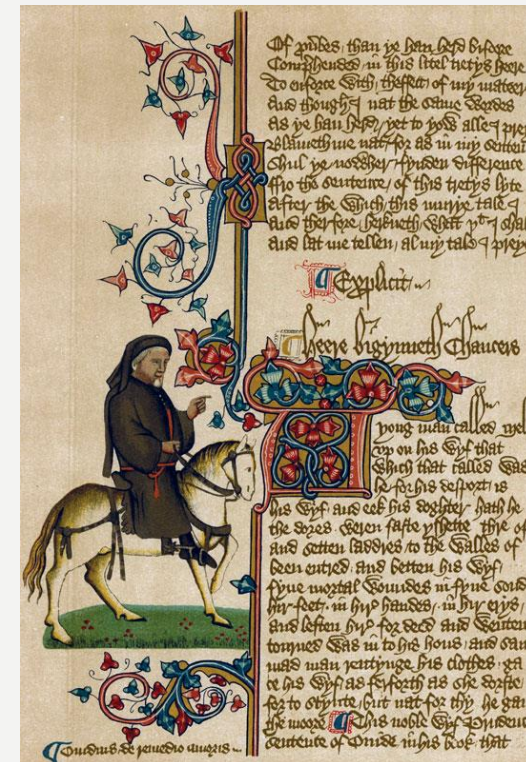 Of prouerbes than ye han herd bifore
Comprehended in this litel tretys heere
To enforce with theffect of my mateere
And though I nat the same wordes
as ye han herd yet to yow alle I prey
Blameth me nat for as in my senten
Shul ye nowher fynden difference
ffro the sentence of this tretys lyte
after the which this murye tale I
And therfore herkneth what þt I shal
and lat me tellen al my tale I preye
Explicit
Heere bigynneth Chaucers
yong man called mel
vp on his wyf that
which that called was
he for his desport is
his wyf and eek his doghter hath he
the dores weren faste yshette thre of
and setten laddres to the walles of
been entred and betten his wyf
fyue mortal woundes in fyue sond
hir feet in hir handes in hir erys
and leften hir for deed and wenten
tourned was in to his hous and sau
mad man rentynge his clothes ga
ce his wyf as ferforth as she dorste
for to stynte but nat for thy he gan
the moore This noble wyf Prudence
sentence of Ouide in his book that
Ouidius de remedio amoris